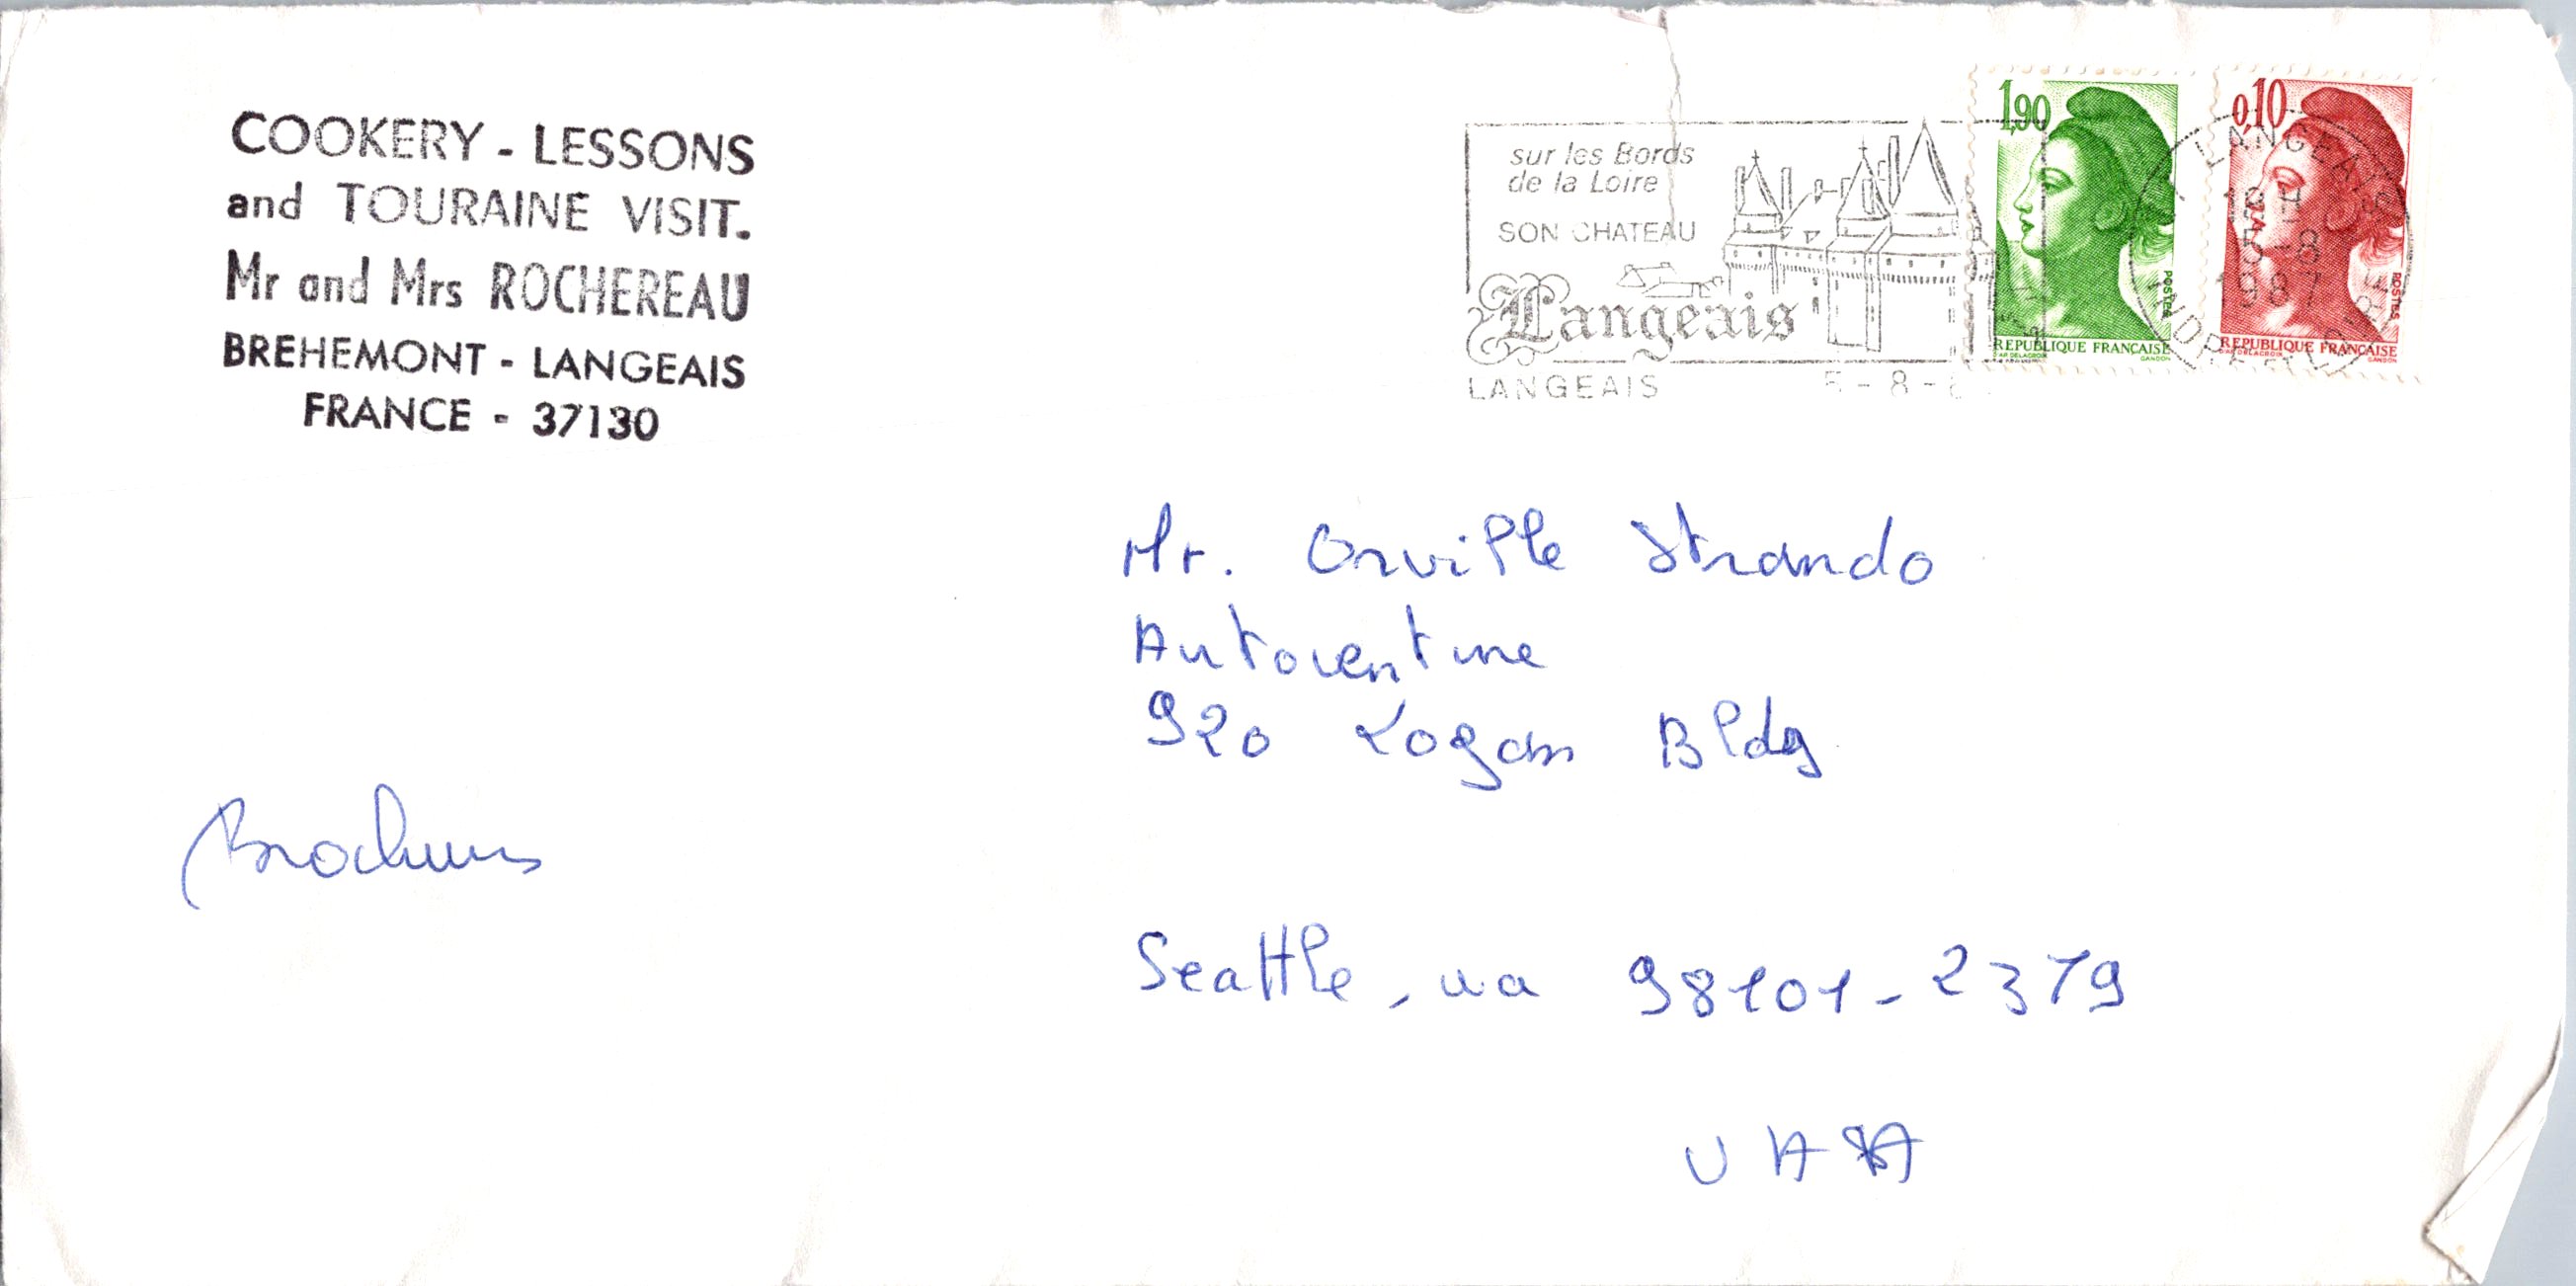 COOKERY - LESSONS
and TOURAINE VISIT.
Mr and Mrs ROCHEREAU
BREHEMONT - LANGEAIS
FRANCE - 37130
sur les Bords
de la Loire
SON CHATEAU
Langeais
LANGEAIS 5 - 8 -
1,90
POSTES
REPUBLIQUE FRANÇAISE
D'AP. DELACROIX GANDON
0,10
POSTES
REPUBLIQUE FRANÇAISE
D'AP. DELACROIX GANDON
LANGEAIS
18 H
5 - 8
1987
INDRE ET LOIRE
Mr. Orville Strando
Autoventure
920 Logan Bldg
Brochures
Seattle, wa 98101-2379